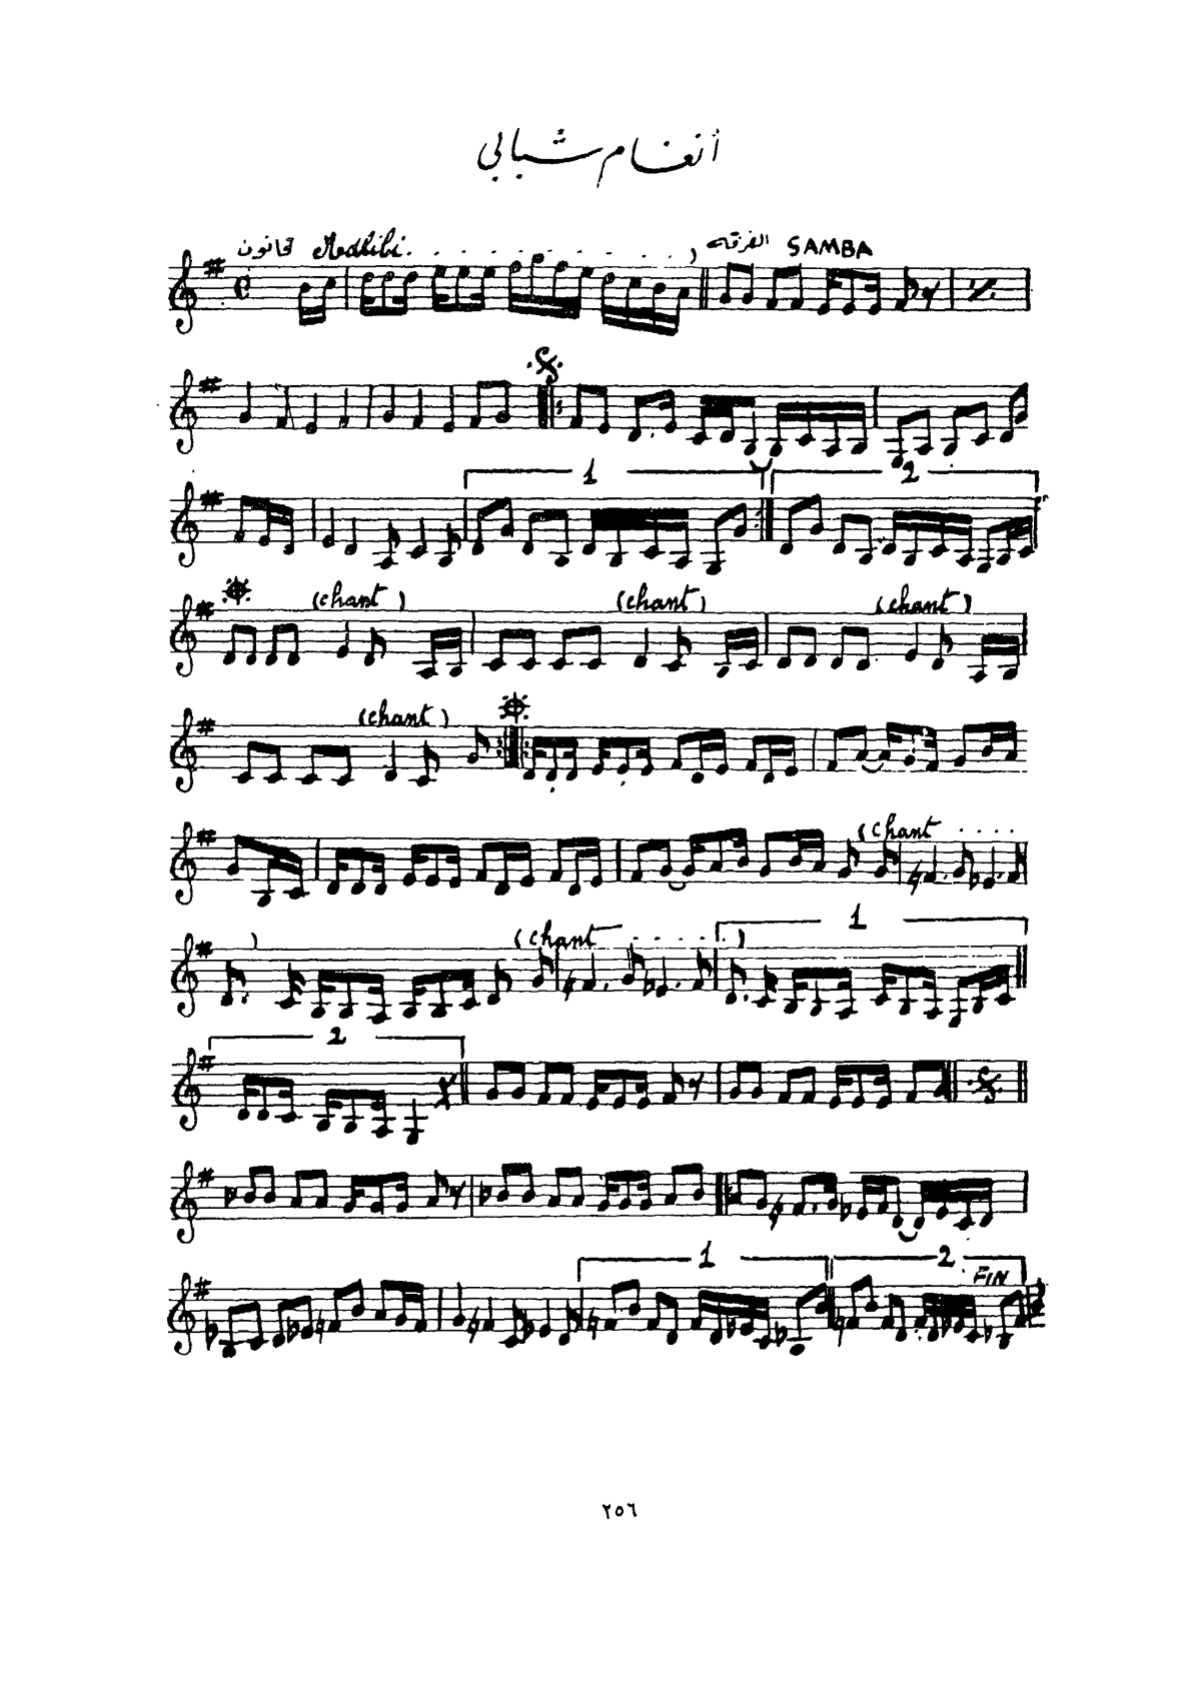 أنغام شبابي
قانون Adlibi . . . . . . . . . . , الفرقة SAMBA
1 2
(chant) (chant) (chant)
(chant)
(chant . . . .
) (chant . . . . . ) 1
2
1 2
FIN
٢٥٦